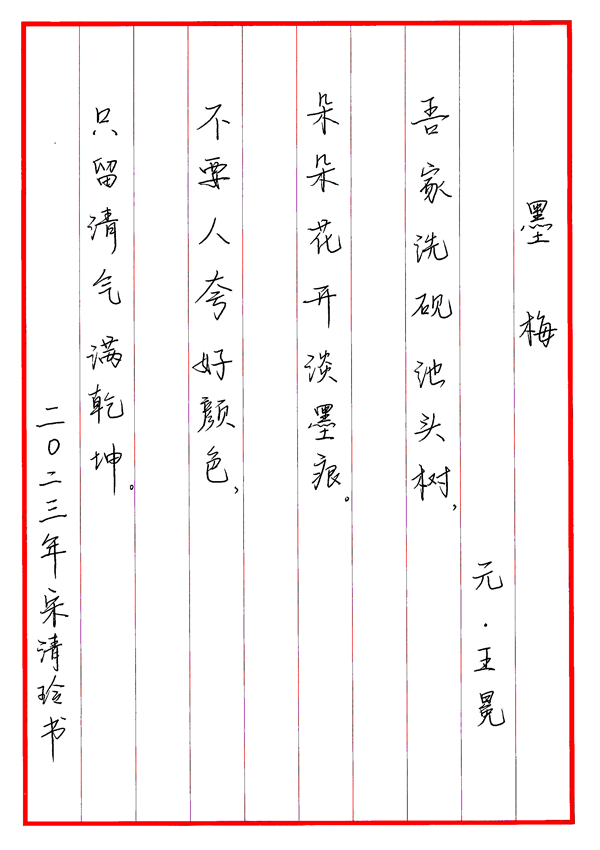 墨梅
元·王冕
吾家洗砚池头树，
朵朵花开淡墨痕。
不要人夸好颜色，
只留清气满乾坤。
二〇二三年宋清玲书